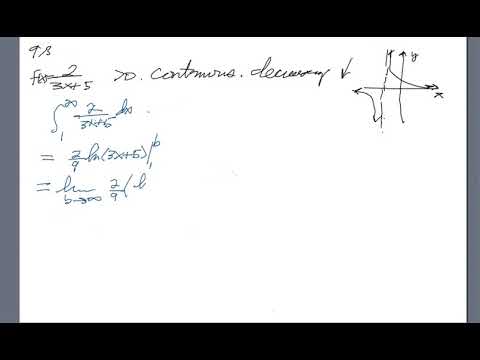 9.3
f(x)=2/(3x+5) >0. continuous. decreasing ↓
y
x
∫₁^∞ 2/(3x+5) dx.
= 2/9 ln(3x+5)|₁^b
= lim b→∞ 2/9 ( l